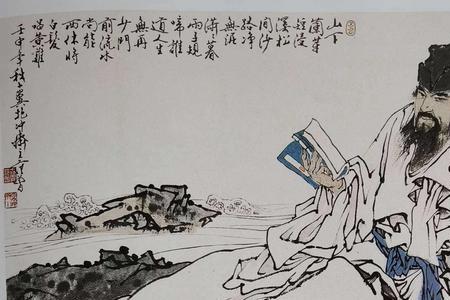 山下
蘭芽
短浸
溪松
間沙
路淨
無泥
瀟〻暮
雨子規
啼誰
道人生
無再
少門
前流水
尚能
西休將
白髮
唱黄雞
壬申年秋十翼抱冲齋主